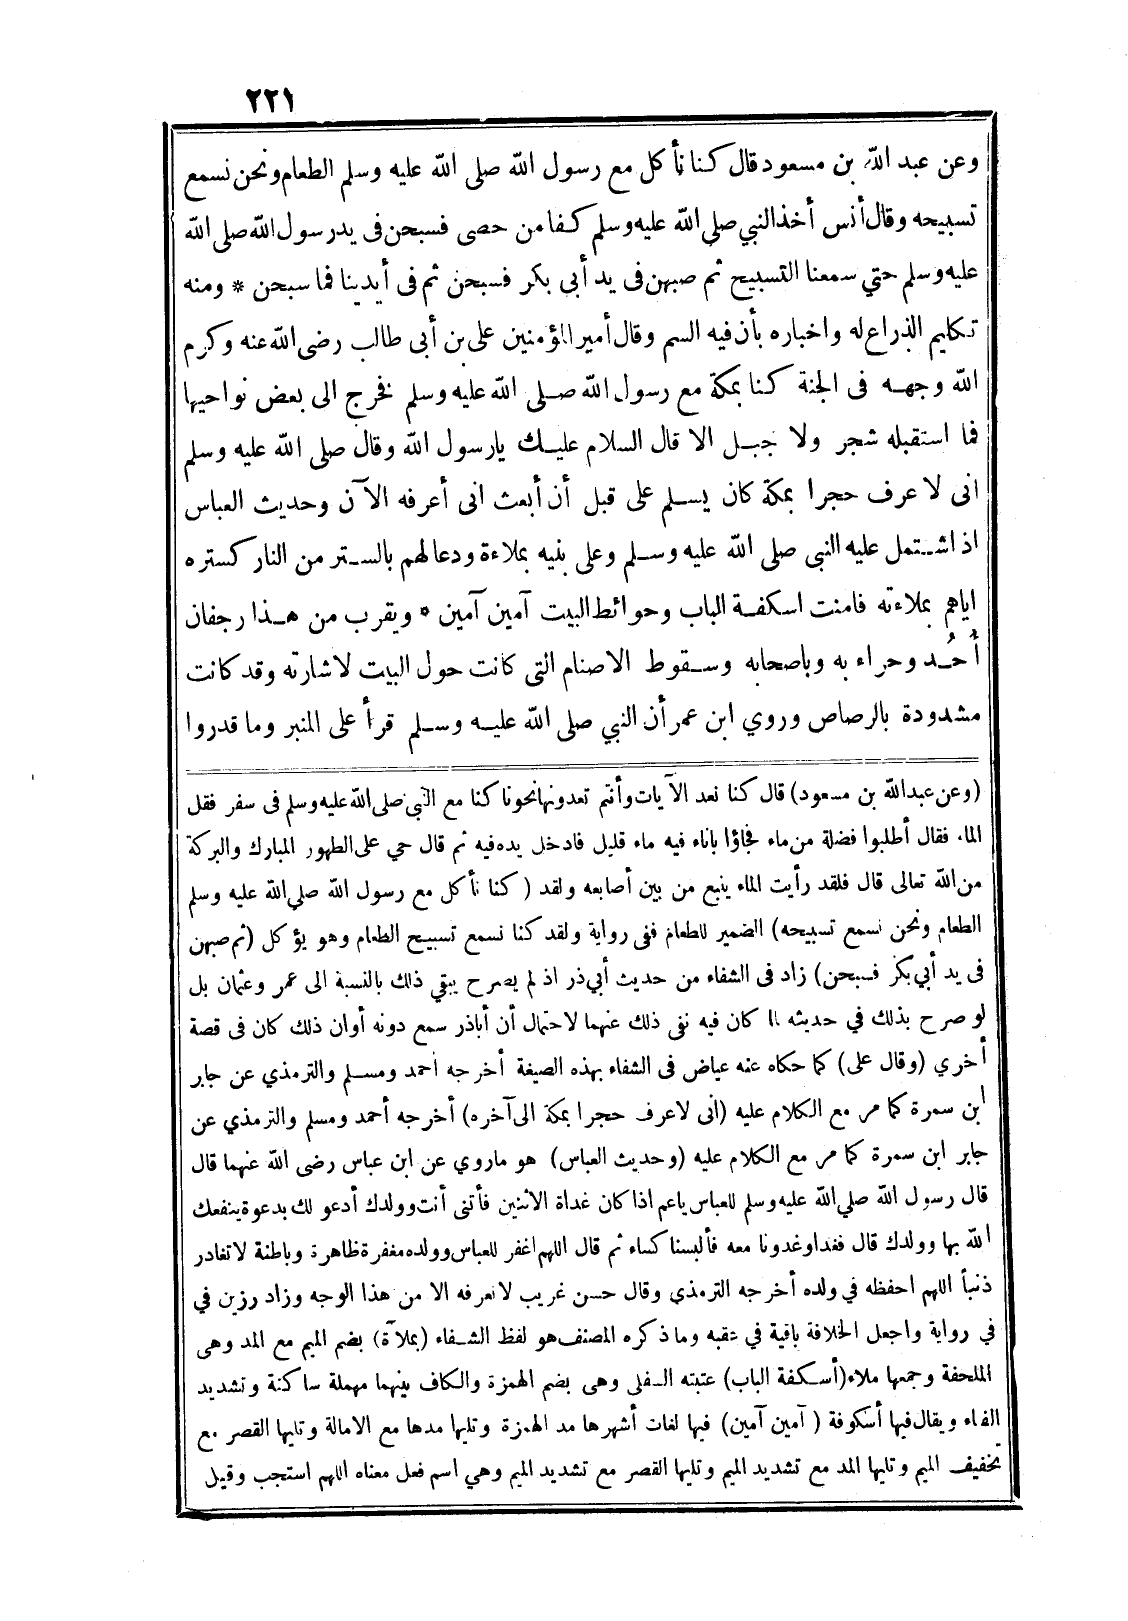 ٢٢١
وعن عبد الله بن مسعود قال كنا نأكل مع رسول الله صلى الله عليه وسلم الطعام ونحن نسمع
تسبيحه وقال أنس أخذ النبي صلى الله عليه وسلم كفا من حصى فسبحن فى يد رسول الله صلى الله
عليه وسلم حتي سمعنا التسبيح ثم صبهن فى يد أبى بكر فسبحن ثم فى أيدينا فما سبحن * ومنه
تكليم الذراع له واخباره بأن فيه السم وقال أمير المؤمنين على بن أبى طالب رضى الله عنه وكرم
الله وجهه فى الجنة كنا بمكة مع رسول الله صلى الله عليه وسلم فخرج الى بعض نواحيها
فما استقبله شجر ولا جبل الا قال السلام عليك يارسول الله وقال صلى الله عليه وسلم
انى لا عرف حجرا بمكة كان يسلم على قبل أن أبعث انى أعرفه الآن وحديث العباس
اذ اشتمل عليه النبى صلى الله عليه وسلم وعلى بنيه بملاءة ودعا لهم بالستر من النار كستره
اياهم بملاءته فامنت اسكفة الباب وحوائط البيت آمين آمين * ويقرب من هذا رجفان
أُحُد وحراء به وباصحابه وسقوط الاصنام التى كانت حول البيت لاشارته وقد كانت
مشدودة بالرصاص وروي ابن عمر أن النبي صلى الله عليه وسلم قرأ على المنبر وما قدروا
(وعن عبدالله بن مسعود) قال كنا نعد الآيات وأنتم تعدونها نحوفا كنا مع النبى صلى الله عليه وسلم فى سفر فقل
الماء فقال أطلبوا فضلة من ماء فجاؤا باناء فيه ماء قليل فادخل يده فيه ثم قال حي على الطهور المبارك والبركة
من الله تعالى قال فلقد رأيت الماء ينبع من بين أصابعه ولقد ( كنا نأكل مع رسول الله صلى الله عليه وسلم
الطعام ونحن نسمع تسبيحه) الضمير للطعام ففى رواية ولقد كنا نسمع تسبيح الطعام وهو يؤكل (ثم صبهن
فى يد أبي بكر فسبحن) زاد فى الشفاء من حديث أبي ذر اذ لم يصرح يبقي ذلك بالنسبة الى عمر وعثمان بل
لو صرح بذلك في حديثه لما كان فيه نفى ذلك عنهما لاحتمال أن أباذر سمع دونه أوان ذلك كان فى قصة
أخري (وقال على) كما حكاه عنه عياض فى الشفاء بهذه الصيغة أخرجه أحمد ومسلم والترمذي عن جابر
ابن سمرة كما مر مع الكلام عليه (انى لاعرف حجرا بمكة الى آخره) أخرجه أحمد ومسلم والترمذي عن
جابر ابن سمرة كما مر مع الكلام عليه (وحديث العباس) هو ماروي عن ابن عباس رضى الله عنهما قال
قال رسول الله صلي الله عليه وسلم للعباس ياعم اذا كان غداة الاثنين فأتنى أنت وولدك أدعو لك بدعوة ينفعك
الله بها وولدك قال فغدا وغدونا معه فألبسنا كساء ثم قال اللهم اغفر للعباس وولده مغفرة ظاهرة وباطنة لا تغادر
ذنبأ اللهم احفظه في ولده أخرجه الترمذي وقال حسن غريب لا نعرفه الا من هذا الوجه وزاد رزين في
في رواية واجعل الخلافة باقية في عقبه وما ذكره المصنف هو لفظ الشفاء (بملآة) بضم الميم مع المد وهى
الملحفة وجمعها ملاء (أسكفة الباب) عتبته السفلى وهى بضم الهمزة والكاف بينهما مهملة ساكنة وتشديد
الفاء ويقال فيها أسكوفة ( آمين آمين) فيها لغات أشهرها مد الهمزة وتليها مدها مع الامالة وتليها القصر مع
تخفيف الميم وتليها المد مع تشديد الميم وتليها القصر مع تشديد الميم وهي اسم فعل معناه اللهم استجب وقيل